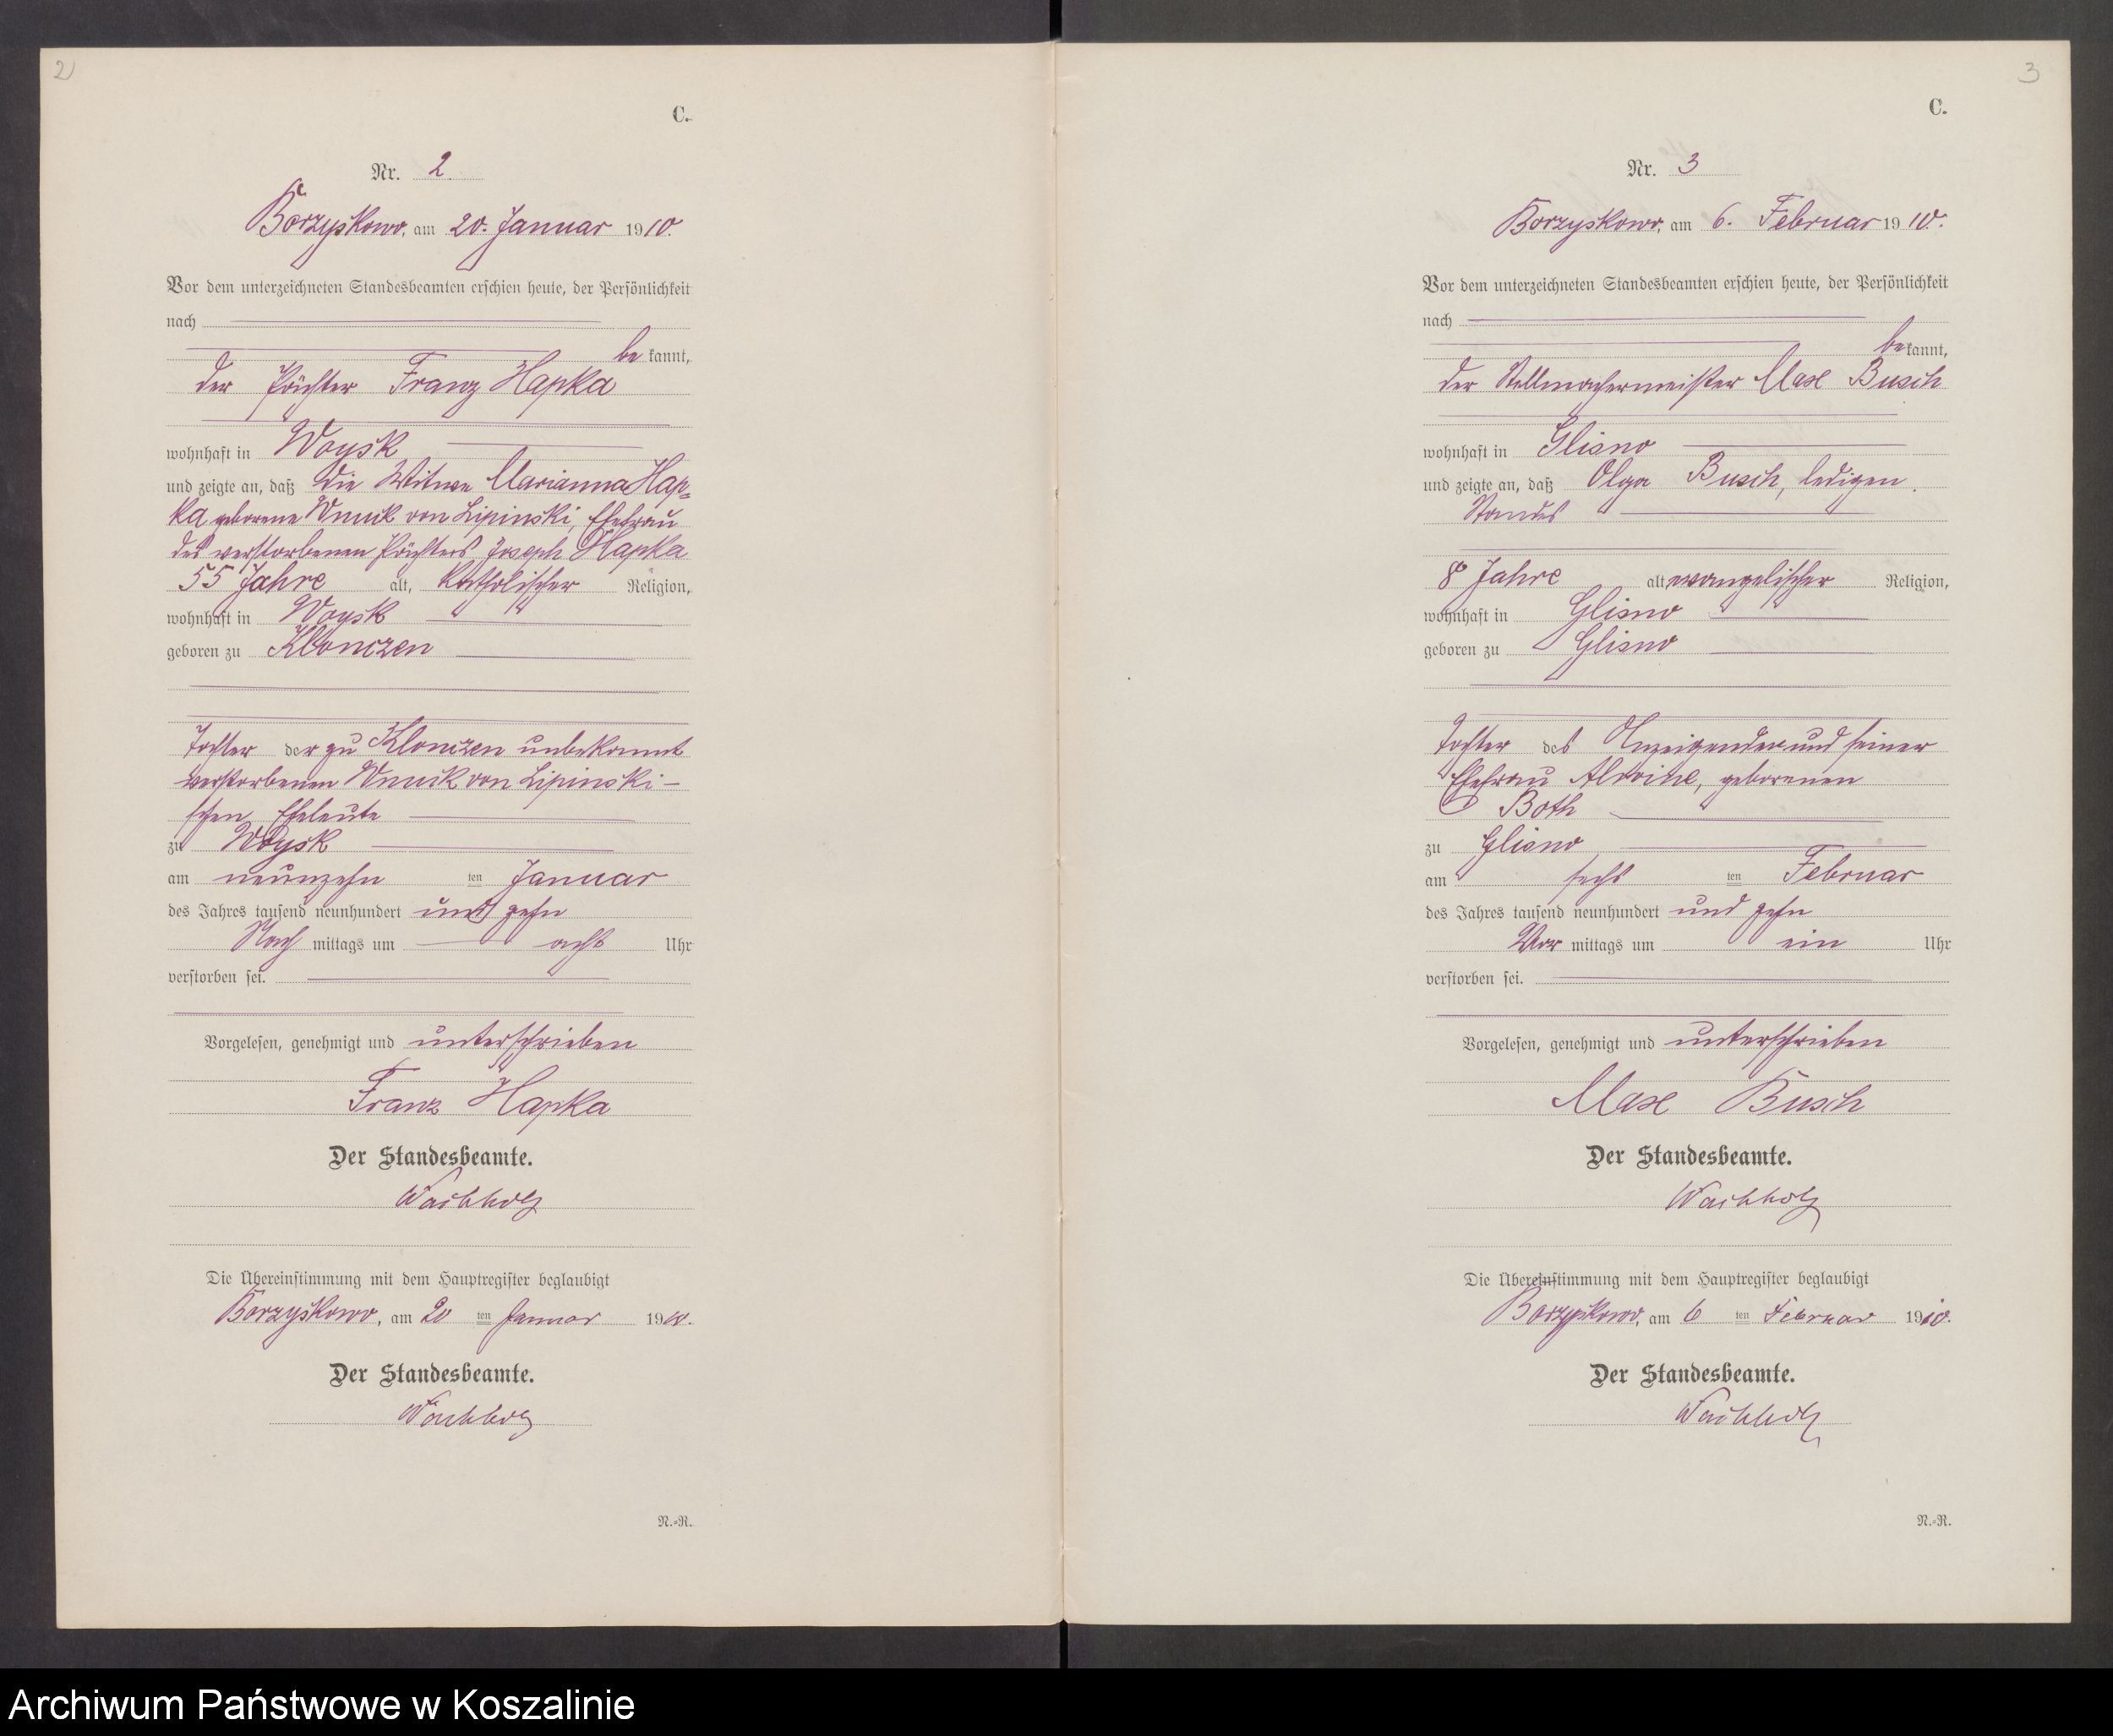 2
C.
Nr. 2
Borzyskowo, am 20. Januar 1910.
Vor dem unterzeichneten Standesbeamten erschien heute, der Persönlichkeit
nach
be kannt,
der Pächter Franz Hapka
wohnhaft in Woysk
und zeigte an, daß die Witwe Marianna Hap=
ka geborene Wnuk von Lipinski, Ehefrau
des verstorbenen Pächters Joseph Hapka
55 Jahre alt, katholischer Religion,
wohnhaft in Woysk
geboren zu Klonczen
Tochter der zu Klonczen unbekannt
verstorbenen Wnuk von Lipinski-
schen Eheleute
zu Woysk
am neunzehn ten Januar
des Jahres tausend neunhundert und zehn
Nach mittags um acht Uhr
verstorben sei.
Vorgelesen, genehmigt und unterschrieben
Franz Hapka
Der Standesbeamte.
Wachholz
Die Übereinstimmung mit dem Hauptregister beglaubigt
Borzyskowo, am 20 ten Januar 1910.
Der Standesbeamte.
Wachholz
N.=R.
3
C.
Nr. 3
Borzyskowo, am 6. Februar 1910.
Vor dem unterzeichneten Standesbeamten erschien heute, der Persönlichkeit
nach
be kannt,
der Stellmachermeister Max Busch
wohnhaft in Glisno
und zeigte an, daß Olga Busch, ledigen
Standes
8 Jahre alt evangelischer Religion,
wohnhaft in Glisno
geboren zu Glisno
Tochter des Anzeigenden und seiner
Ehefrau Alwine, geborenen
Both
zu Glisno
am sechs ten Februar
des Jahres tausend neunhundert und zehn
Vor mittags um ein Uhr
verstorben sei.
Vorgelesen, genehmigt und unterschrieben
Max Busch
Der Standesbeamte.
Wachholz
Die Übereinstimmung mit dem Hauptregister beglaubigt
Borzyskowo, am 6 ten Februar 1910.
Der Standesbeamte.
Wachholz
N.=R.
Archiwum Państwowe w Koszalinie